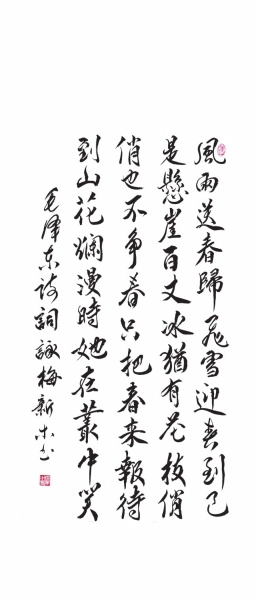 風雨送春歸飛雪迎春到已
是懸崖百丈冰猶有花枝俏
俏也不争春只把春來報待
到山花爛漫時她在叢中笑
毛泽东诗詞詠梅新书